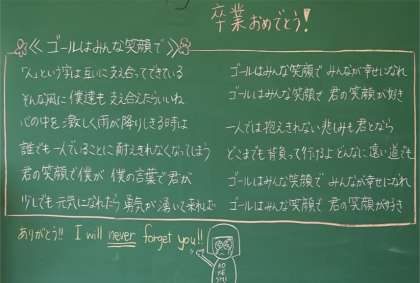 卒業おめでとう!
《ゴールはみんな笑顔で》
「人」という字は互いに支え合ってできている
そんな風に僕達も支え合えたらいいね
心の中を激しく雨が降りしきる時は
誰でも一人でいることに耐えきれなくなってしまう
君の笑顔で僕が 僕の言葉で君が
少しでも元気になれたら 勇気が湧いて来れば
ゴールはみんな笑顔で みんなが幸せになれ
ゴールはみんな笑顔で 君の笑顔が好き
一人では抱えきれない悲しみも君となら
どこまでも背負って行けるよ どんなに遠い道でも
ゴールはみんな笑顔で みんなが幸せになれ
ゴールはみんな笑顔で 君の笑顔が好き
ありがとう!! I will never forget you!!